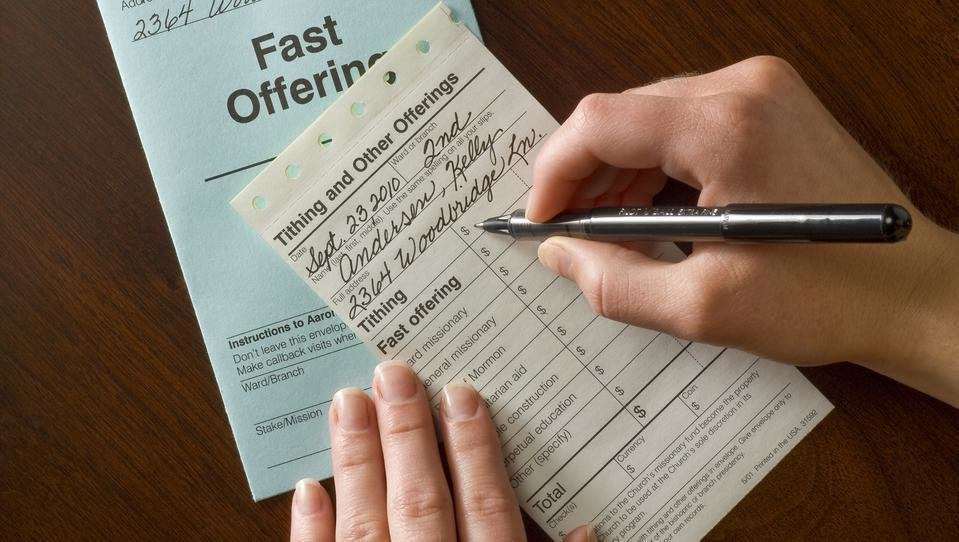 2364
Fast
Offering
Instructions to
Don't leave this
Make callback visits
Ward/Branch
Stake/Mission
Tithing and Other Offerings
Date
Ward or branch
Sept. 23 2010 2nd
Name (last, first, middle). Use the same spelling on all your slips.
Andersen, Kelly
Full address
2364 Woodbridge, Ln.
Tithing $
Fast offering $
missionary $
missionary $
Mormon $
aid $
construction $
education $
Other (specify)
Total $
Currency
Coin
Check(s)
$
to the Church's missionary fund become the property
to be used at the Church's sole discretion in its
program.
tithing and other offerings in envelope. Give envelope only to
of the bishopric or branch presidency.
own records.
5/01. Printed in the USA. 31592